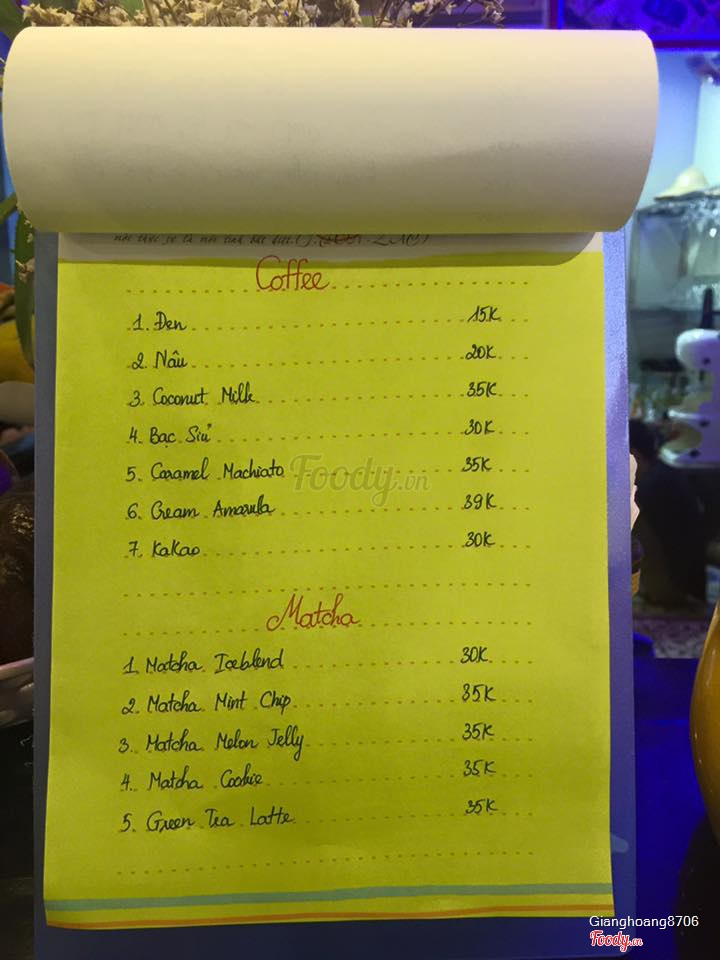 Coffee
1. Đen 15K
2. Nâu 20K
3. Coconut Milk 35K
4. Bạc Sỉu 30K
5. Caramel Machiato 35K
6. Cream Amarula 39K
7. KaKao 30K
Foody.vn
Matcha
1. Matcha Iceblend 30K
2. Matcha Mint Chip 35K
3. Matcha Melon Jelly 35K
4. Matcha Cookie 35K
5. Green Tea Latte 35K
Gianghoang8706
Foody.vn